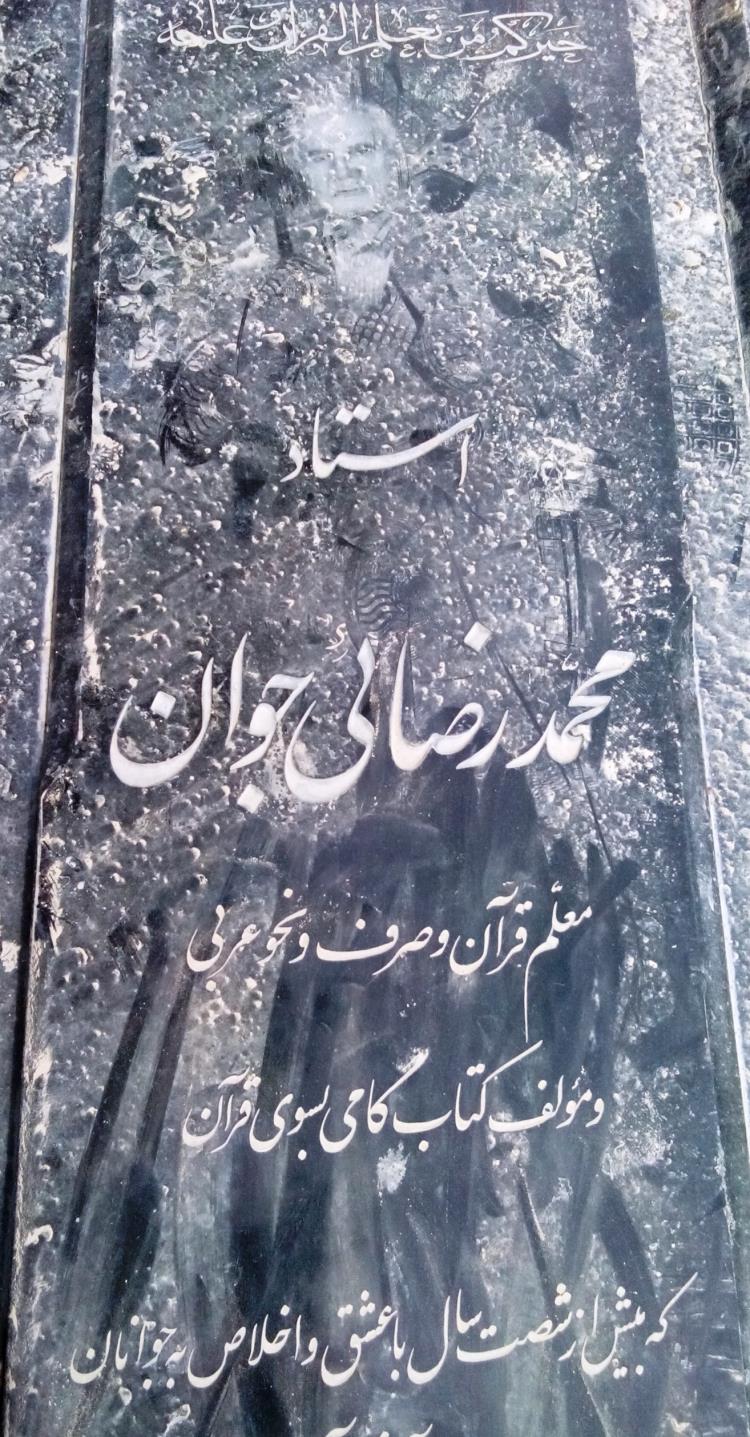 خیرکم من تعلم القرآن و علمه
استاد
محمّد رضائی جوان
معلّم قرآن و صرف و نحو عربی
و مؤلف کتاب گامی بسوی قرآن
که بیش از شصت سال با عشق و اخلاص به جوانان